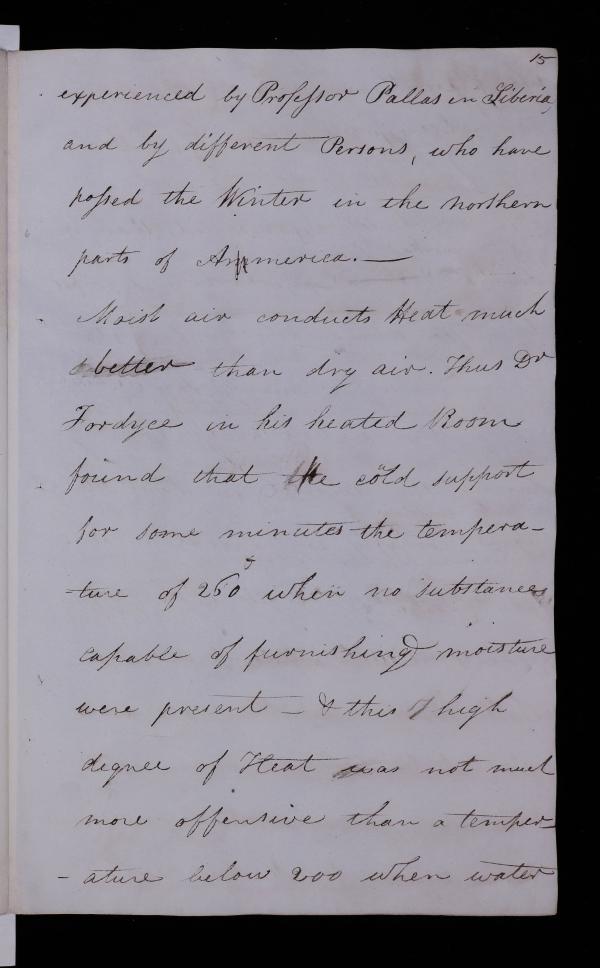 15
experienced by Professor Pallas in Siberia,
and by different Persons, who have
possed the Winter in the northern
parts of Ammerica. —
Moist air conducts Heat much
better than dry air. Thus Dr
Fordyce in his heated Room
found that he cold support
for some minutes the tempera-
ture of 260° when no substances
capable of furnishing moisture
were present — & this high
degree of Heat was not much
more offensive than a temper-
-ature below 200 when water